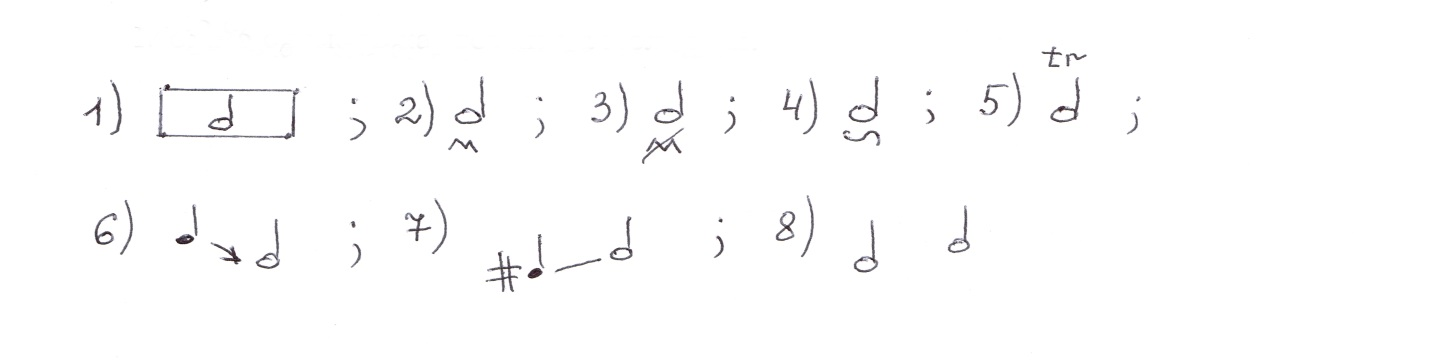 1) 𝅗𝅥 ; 2) 𝅗𝅥 ; 3) 𝅗𝅥 ; 4) 𝅗𝅥 ; 5) tr 𝅗𝅥 ;
6) ♩ ↘ 𝅗𝅥 ; 7) #♩ — 𝅗𝅥 ; 8) 𝅗𝅥 𝅗𝅥